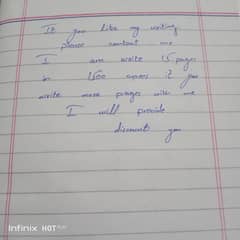 If you like my writing
please contact me
I are write 15 pages
in 1500 rupees if you
write more pages with me
I will provide
discount you
Infinix HOT